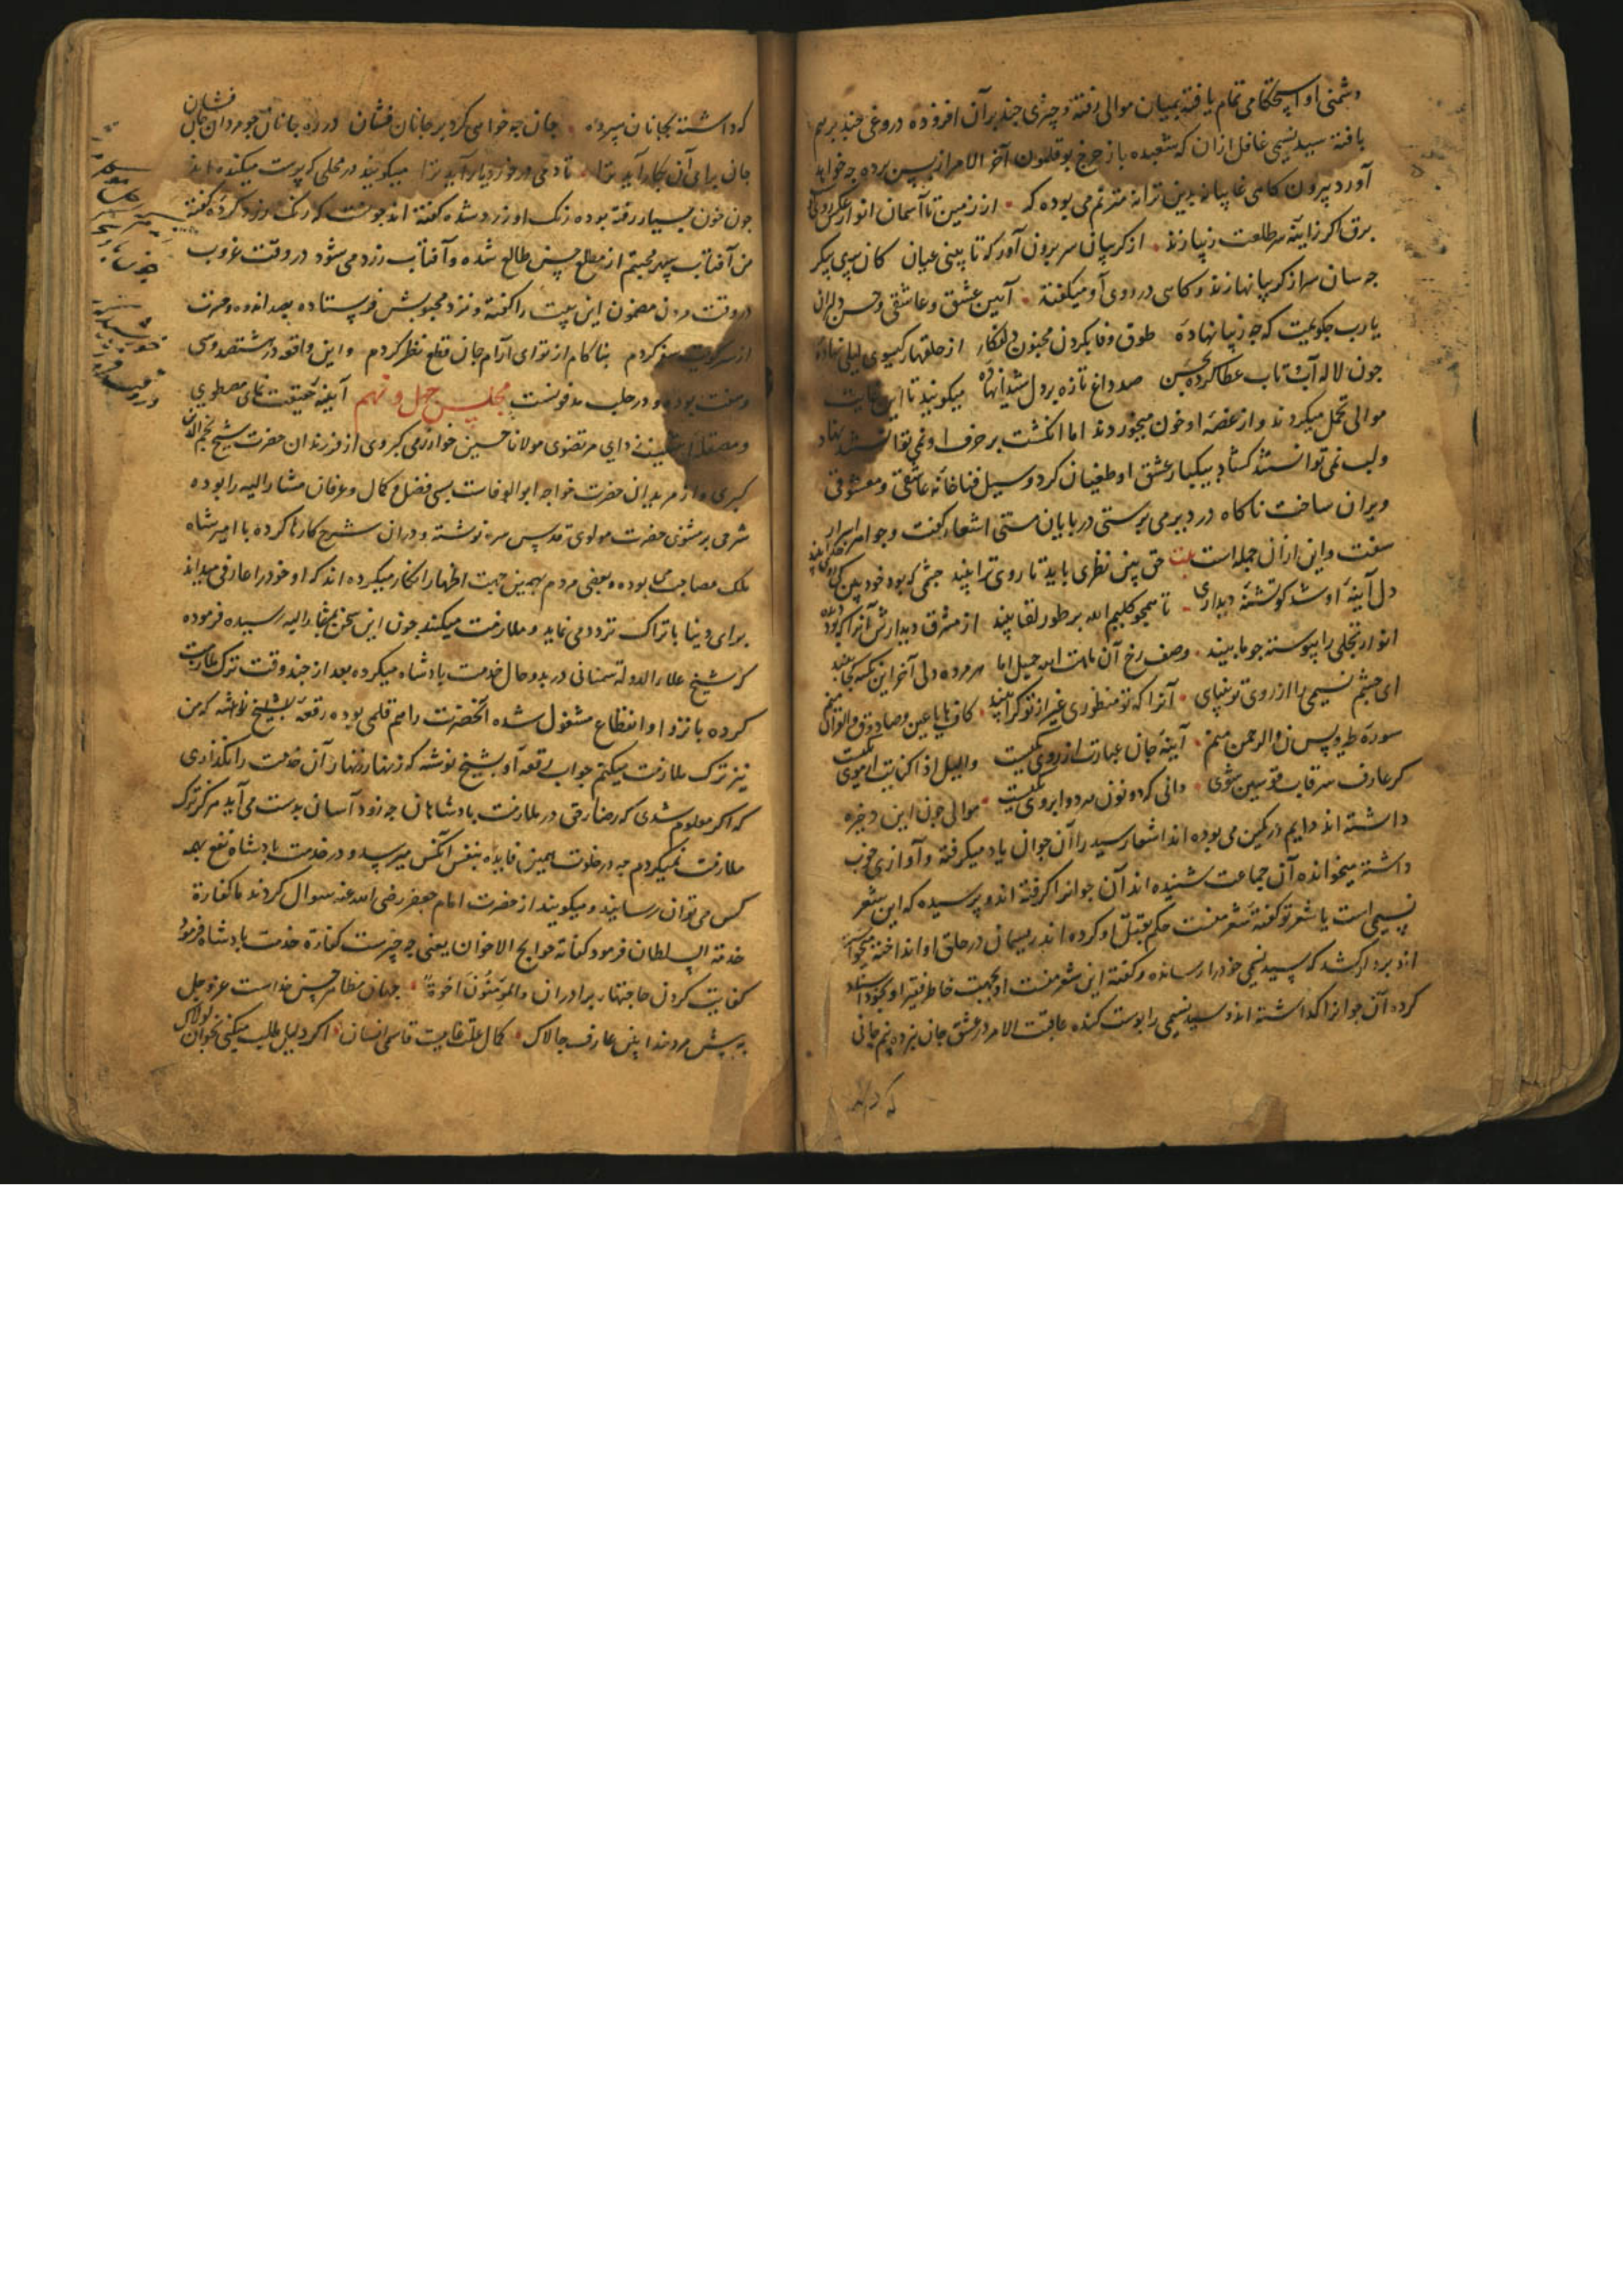 دشمنی او استحکامی تمام یافته بمیان موالی رفته و چیزی چند بر آن افزوده دروغی چند بر هم
بافته سید نسیمی غافل ازان که شعبده باز چرخ بوقلمون آخر الامر از پس پرده چه خواهد
آورد بیرون کاهی غایبانه بدین ترانه مترنم می بوده که از زمین تا آسمان انوار عکس روی
برق اگر زاینه طلعت زیبا زند از کریبان سر برون آور که تا بینی عیان کان پری پیکر
چه سان سر از کریبانها زند و کاهی در روی او میکفته آیین عشق و عاشقی و حسن دلبران
یا رب چکویمت که چه زیبا نهاده طوق وفا بکردن مجنون دلفکار از حلقهای کیسوی لیلی نهاده
چون لاله آب و تاب عطا کرده بحسن صد داغ تازه بر دل شیدا نهاده میکویند تا این غایت
موالی تحمل میکردند و از غصه او خون میخوردند اما انکشت بر حرف او نمی توانستند نهاد
و لب نمی توانستند کشاد بیکبار عشق او طغیان کرد و سیل فنا خانه عاشقی و معشوقی
ویران ساخت ناکاه در دیر می پرستی در پایان مستی اشعار کفت و جواهر اسرار
سفت و این ازان جمله است بیت حق بین نظری باید تا روی ترا بیند چشمی که بود خود بین کی روی خدا بیند
دل آینه او شد کو تشنه دیداری تا همچو کلیم الله بر طور لقا بیند از مشرق دیدارش آنرا که بود دیده
انوار تجلی را پیوسته چو ما بیند وصف رخ آن ماهت ای جمیل اما هر مرده دلی آخر این نکته کجا بیند
ای چشم نسیمی را از روی تو بینایی آنرا که تو منظوری غیر از تو کرا بیند کاف ها یا عین و صاد و ق والقرآن منم
سوره طه و یس ن والرحمن منم آینه جان عبارت از روی کیست واللیل اذا کنایت از موی کیست
کر عارف سر قاب قوسین شوی دانی که دو نون مد دو ابروی کیست موالی چون این ذخیره
داشته اند دایم در کمین می بوده اند اشعار سید را آن جوان یاد میکرفته و آوازی خوب
داشته میخوانده آن جماعت شنیده اند آن جوانرا کرفته اند و پرسیده که این شعر
نسیمی است یا شعر تو کفته شعر منست حکم بقتل او کرده اند ریسمان در حلق او انداخته میخواسته
اند بردار کشد که سید نسیمی خود را رسانده و کفته این شعر منست او بجهت خاطر فقیر او بخود اسناد
کرده آن جوانرا کذاشته اند و سید نسیمی را پوست کنده عاقبت الامر در عشق جان برده نیم جانی
که داشته
که داشته بجانان سپرده جان چه خواهی کرد بر جانان فشان در ره جانان چو مردان جان فشان
جان برای آن بکار آید ترا تا دمی در خورد یار آید ترا میکویند در محلی که پوست میکنده اند
چون خون بسیار رفته بوده رنک او زرد شده کفته اند چونست که رنکت زرد کرده کفته
من آفتاب سپهر محبتم از مطلع حسن طالع شده و آفتاب زرد می شود در وقت غروب
در وقت مردن مضمون این بیت را کفته و نزد محبوبش فرستاده بصد اندوه و حسرت
از سر کویت سفر کردم بناکام از تو ای آرام جان قطع نظر کردم و این واقعه در هشتصد و سی
و هفت بوده و در حلب مدفونست مجلس چهل و نهم آینه حقیقت نمای مصطفوی
و مصقله سفینه دای مرتضوی مولانا حسین خوارزمی کبروی از فرزندان حضرت شیخ نجم الدین
کبری و از مریدان حضرت خواجه ابو الوفاست بسی فضل و کمال و عرفان مشار الیه را بوده
شرحی بر مثنوی حضرت مولوی قدس سره نوشته و دران شرح کارها کرده با امیر شاه
ملک مصاحب می بوده و بعضی مردم بهمین جهت اظهار انکار میکرده اند که او خود را عارف میداند
برای دنیا با تراک تردد می نماید و ملازمت میکند چون این سخن بمشار الیه رسیده فرموده
که شیخ علاء الدوله سمنانی در بدو حال خدمت پادشاه میکرده بعد از چند وقت ترک ملازمت
کرده بانزوا و انقطاع مشغول شده آنحضرت را هم قلمی بوده رقعه بشیخ نوشته که من
نیز ترک ملازمت میکنم جواب رقعه او شیخ نوشته که زنهار زنهار آن خدمت را نکذاری
که اکر معلوم شدی که رضای حق در ملازمت پادشاهان چه زود آسان بدست می آید هرکز ترک
ملازمت نمیکردم چه در خلوت همین فایده بنفس آنکس میرسد و در خدمت پادشاه نفع بهمه
کس می توان رسانید و میکویند از حضرت امام جعفر رضی الله عنه سوال کردند ما کفارة
خدمة السلطان فرمود کفایة حوایج الاخوان یعنی چه چیزست کفاره خدمت پادشاه فرمود
کفایت کردن حاجتهای برادران والمؤمنون اخوة جهان مظاهر حسن خداست عز وجل
به پیش مرد خدا بین عارف چالاک کمال علت غاییت قاسمی انسان اکر دلیل طلب میکنی بخوان لولاک